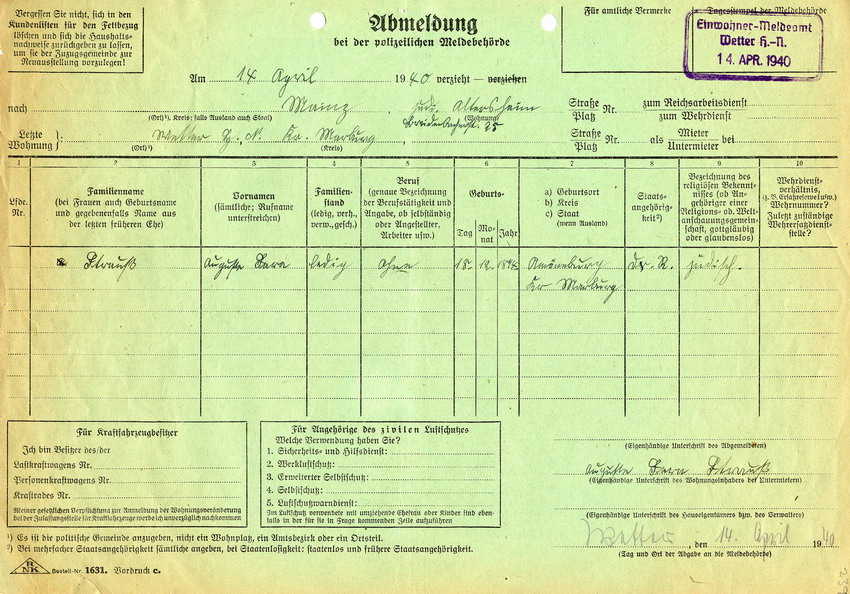 Vergessen Sie nicht, sich in den
Kundenlisten für den Fettbezug
löschen und sich die Haushalts-
nachweise zurückgeben zu lassen,
um sie der Zuzugsgemeinde zur
Neuausstellung vorzulegen!
Abmeldung
bei der polizeilichen Meldebehörde
Für amtliche Vermerke
Tagesstempel der Meldebehörde
Einwohner-Meldeamt
Wetter H.-N.
14. APR. 1940
Am 14 April 1940 verzieht — verziehen
nach Mainz jüd. Altersheim Straße Platz Nr. zum Reichsarbeitsdienst zum Wehrdienst
(Ort)¹), Kreis; falls Ausland auch Staat) (Wohnung)
Letzte Wohnung Wetter H.-N. Kr. Marburg 25 Straße Platz Nr. als Mieter Untermieter bei
(Ort)¹) (Kreis)
1 2 3 4 5 6 7 8 9 10
Lfde. Nr.
Familienname
(bei Frauen auch Geburtsname
und gegebenenfalls Name aus
der letzten früheren Ehe)
Vornamen
(sämtliche; Rufname
unterstreichen)
Familien-
stand
(ledig, verh.,
verw., gesch.)
Beruf
(genaue Bezeichnung
der Berufstätigkeit und
Angabe, ob selbständig
oder Angestellter,
Arbeiter usw.)
Geburts-
Tag Mo-nat Jahr
a) Geburtsort
b) Kreis
c) Staat
(wenn Ausland)
Staats-
angehörig-
keit²)
Bezeichnung des
religiösen Bekennt-
nisses (ob An-
gehöriger einer
Religions- od. Welt-
anschauungsgemein-
schaft, gottgläubig
oder glaubenslos)
Wehrdienst-
verhältnis,
(z. B. Ersatzreserve I usw.)
Wehrnummer?
Zuletzt zuständige
Wehrersatzdienst-
stelle?
Strauß Auguste Sara ledig Ohne 18. 12. Amöneburg D. R. jüdisch.
Kr Marburg
Für Kraftfahrzeugbesitzer
Ich bin Besitzer des/der
Lastkraftwagens Nr.
Personenkraftwagens Nr.
Kraftrades Nr.
Meiner gesetzlichen Verpflichtung zur Anmeldung der Wohnungsveränderung
bei der Zulassungsstelle für Kraftfahrzeuge werde ich unverzüglich nachkommen
Für Angehörige des zivilen Luftschutzes
Welche Verwendung haben Sie?
1. Sicherheits- und Hilfsdienst:
2. Werkluftschutz:
3. Erweiterter Selbstschutz:
4. Selbstschutz:
5. Luftschutzwarndienst:
Im Luftschutz verwendete mit umziehende Ehefrau oder Kinder sind eben-
falls in der für sie in Frage kommenden Zeile aufzuführen
(Eigenhändige Unterschrift des Abgemeldeten)
Auguste Sara Strauß
(Eigenhändige Unterschrift des Wohnungsinhabers bei Untermietern)
(Eigenhändige Unterschrift des Hauseigentümers bzw. des Verwalters)
Wetter, den 14. April 1940
(Tag und Ort der Abgabe an die Meldebehörde)
¹) Es ist die politische Gemeinde anzugeben, nicht ein Wohnplatz, ein Amtsbezirk oder ein Ortsteil.
²) Bei mehrfacher Staatsangehörigkeit sämtliche angeben, bei Staatenlosigkeit: staatenlos und frühere Staatsangehörigkeit.
RNK Bestell-Nr. 1631. Vordruck c.